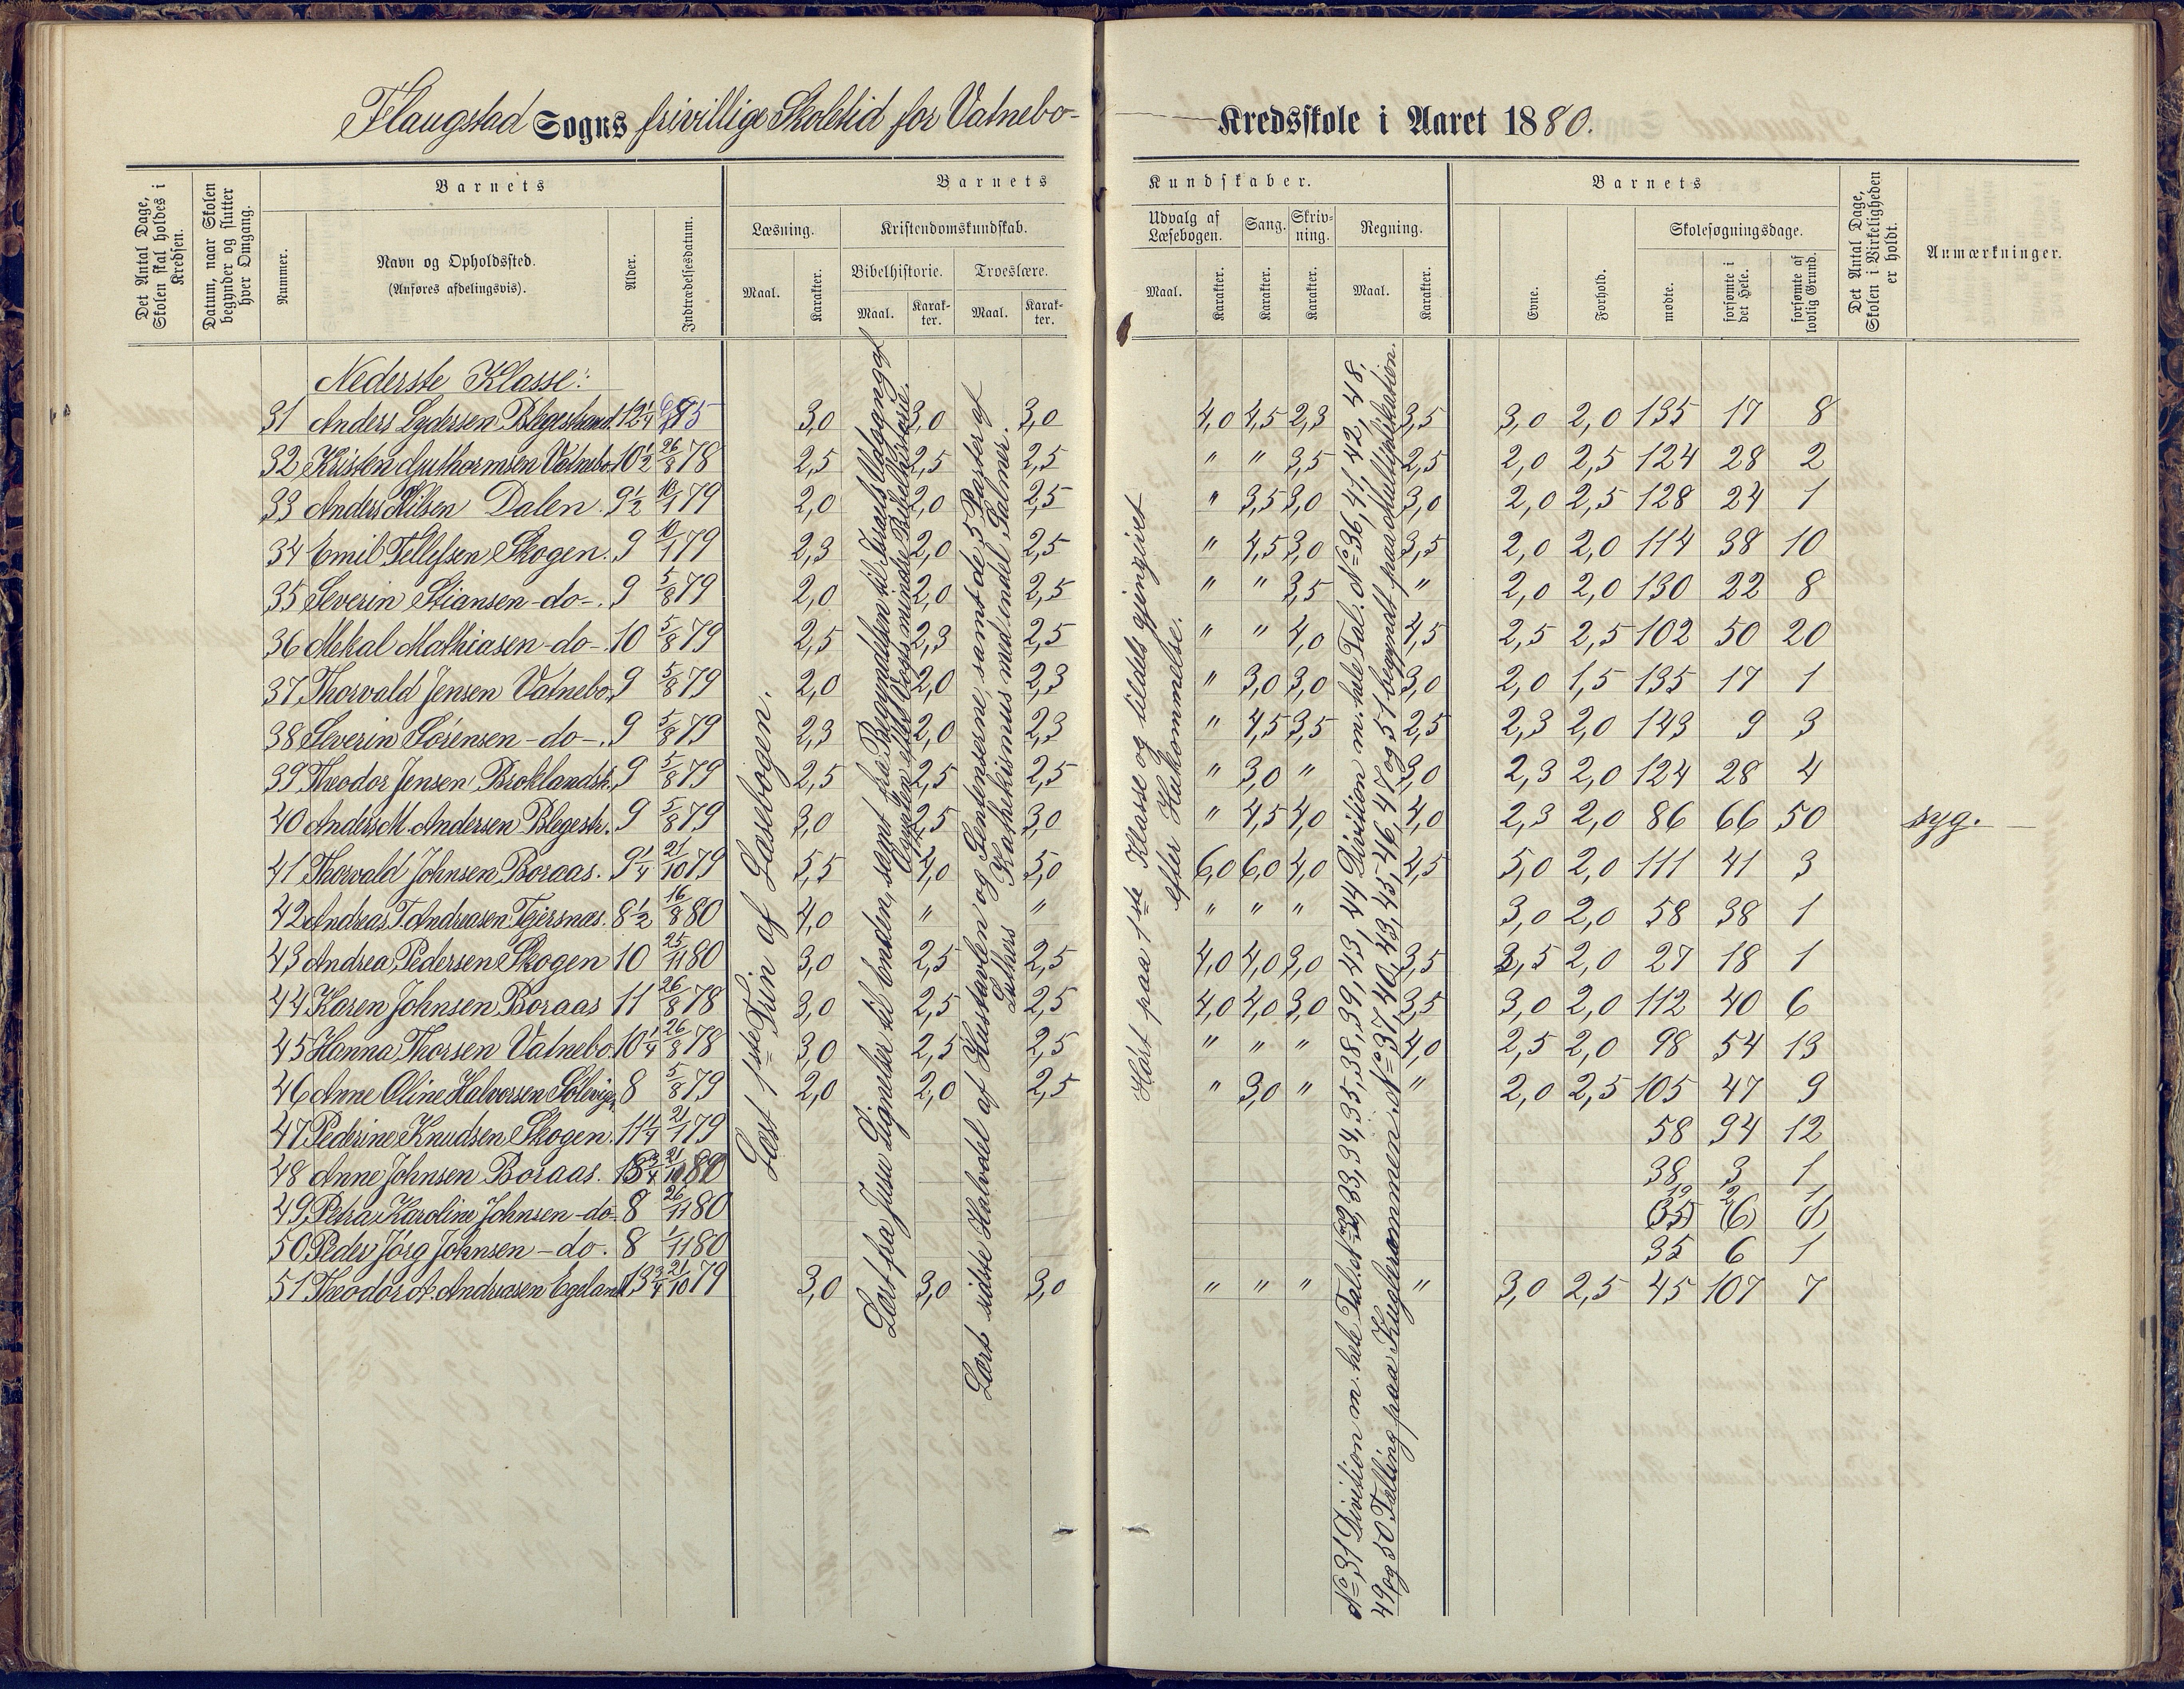 Flaugstad Sogns frivillige Skoletid for Vatnebo-
Kredsskole i Aaret 1880.
Det Antal Dage, Skolen skal holdes i Kredsen.
Datum, naar Skolen begynder og slutter hver Omgang.
Barnets
Nummer.
Navn og Opholdssted.
(Anføres afdelingsvis).
Alder.
Indtrædelsesdatum.
Barnets
Kundskaber.
Læsning.
Maal.
Karakter.
Kristendomskundskab.
Bibelhistorie.
Maal.
Karakter.
Troeslære.
Maal.
Karakter.
Udvalg af Læsebogen.
Maal.
Karakter.
Sang.
Karakter.
Skrivning.
Karakter.
Regning.
Maal.
Karakter.
Barnets
Evne.
Forhold.
Skolesøgningsdage.
mødte.
forsømte i det Hele.
forsømte af lovlig Grund.
Det Antal Dage, Skolen i Virkeligheden er holdt.
Anmærkninger.
Nederste Klasse:
31 Anders Lydersen Blegestrand. 12 1/4 3,0 3,0 3,0 4,0 4,5 2,3 3,5 3,0 2,0 135 17 8
32 Kristen Guthormsen Vatnebo 10 1/2 26/8 78 2,5 2,5 2,5 " " 3,5 2,5 2,0 2,5 124 28 2
33 Anders Nilsen Dalen. 9 1/2 10/1 79 2,0 2,0 2,5 " 3,5 3,0 3,0 2,0 2,5 128 24 1
34 Emil Tellefsen Skogen. 9 10/1 79 2,3 2,0 2,5 " 4,5 3,0 3,5 2,0 2,0 114 38 10
35 Severin Stiansen -do-. 9 5/8 79 2,0 2,0 2,5 " " 3,5 " 2,0 2,0 130 22 8
36 Mekal Mathiasen -do-. 10 5/8 79 2,5 2,3 2,5 " " 4,0 4,5 2,5 2,5 102 50 20
37 Thorvald Jensen Vatnebo. 9 5/8 79 2,0 2,0 2,3 " 3,0 3,0 3,0 2,0 1,5 135 17 1
38 Severin Sørensen -do-. 9 5/8 79 2,3 2,0 2,3 " 4,5 3,5 2,5 2,3 2,0 143 9 3
39 Theodor Jensen Broklandsh. 9 5/8 79 2,5 2,5 2,5 " 3,0 " 3,0 2,3 2,0 124 28 4
40 Anders M. Andersen Blegestr. 9 5/8 79 3,0 2,5 3,0 " 4,5 4,0 4,0 2,3 2,0 86 66 50 syg.
41 Thorvald Johnsen Boraas. 9 1/4 21/10 79 5,5 4,0 5,0 6,0 6,0 4,0 4,5 5,0 2,0 111 41 3
42 Andreas T. Andreasen Tjersnæs. 8 1/2 16/8 80 4,0 " " " " " 3,0 2,0 58 38 1
43 Andrea Pedersen Skogen 10 25/11 80 3,0 2,5 2,5 4,0 4,0 3,0 3,5 3,5 2,0 27 18 1
44 Karen Johnsen Boraas 11 26/8 78 3,0 2,5 2,5 4,0 4,0 3,0 3,5 3,0 2,0 112 40 6
45 Hanna Thorsen Vatnebo. 10 1/4 26/8 78 3,0 2,5 2,5 " " " 4,0 2,5 2,0 98 54 13
46 Anne Oline Halvorsen Solevigen 8 5/8 79 2,0 2,0 2,5 " 3,0 " " 2,0 2,5 105 47 9
47 Pederine Knudsen Skogen. 11 1/4 21/1 79 58 94 12
48 Anne Johnsen Boraas. 13 3/4 21/10 80 38 3 1
49 Petra Karoline Johnsen -do- 8 26/11 80 19 2 1
(35) (6) (1)
50 Peder Jörg Johnsen -do. 8 1/11 80 35 6 1
51 Theodor A. Andreasen Egeland 13 3/4 21/10 79 3,0 3,0 3,0 " " " " 3,0 2,5 45 107 7
Læst 1ste Trin af Læsebogen.
Lært fra Jesu Lignelser til Enden, samt fra Begyndelsen til Israels Udgang af
Ægypten efter Vogts mindre Bibelhistorie.
Lært sidste Halvdel af Hustavlen og Sentenserne, samt de 5 Parter af
Luthers Kathekismus med endel Salmer.
Hørt paa 1ste Klasse og tildels gjengivet
efter Hukommelse.
No 31 Division m. hele Tal. No 32, 33, 34, 35, 38, 39, 43, 44 Division m. hele Tal. No 36, 41, 42, 48,
49 og 50 Tælling paa Kuglerammen. No 37, 40, 43, 45, 46, 47 og 51 begyndt paa Multiplikation.